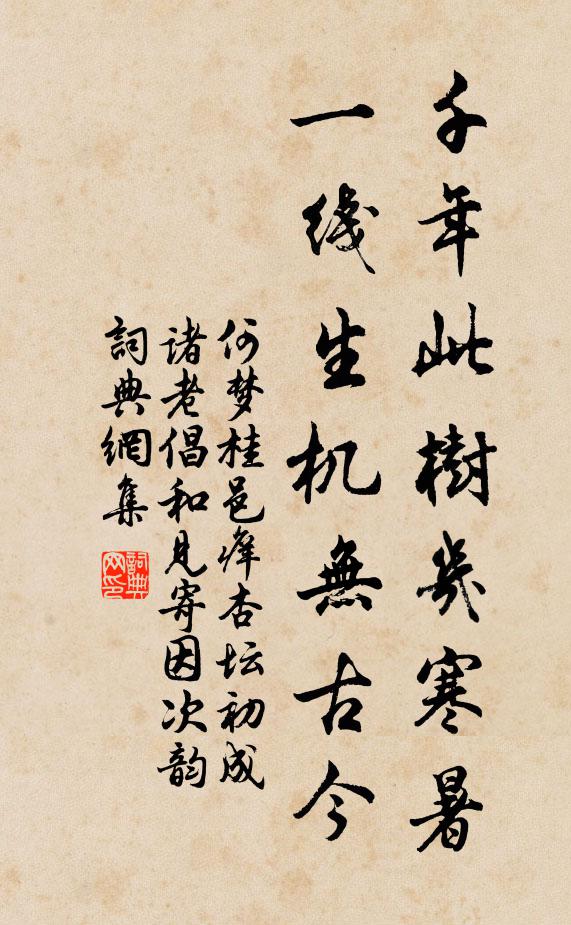 千年此樹幾寒暑
一线生机無古今
何梦桂邑庠杏坛初成
诸老倡和見寄因次韵
詞典網集
詞典
网印